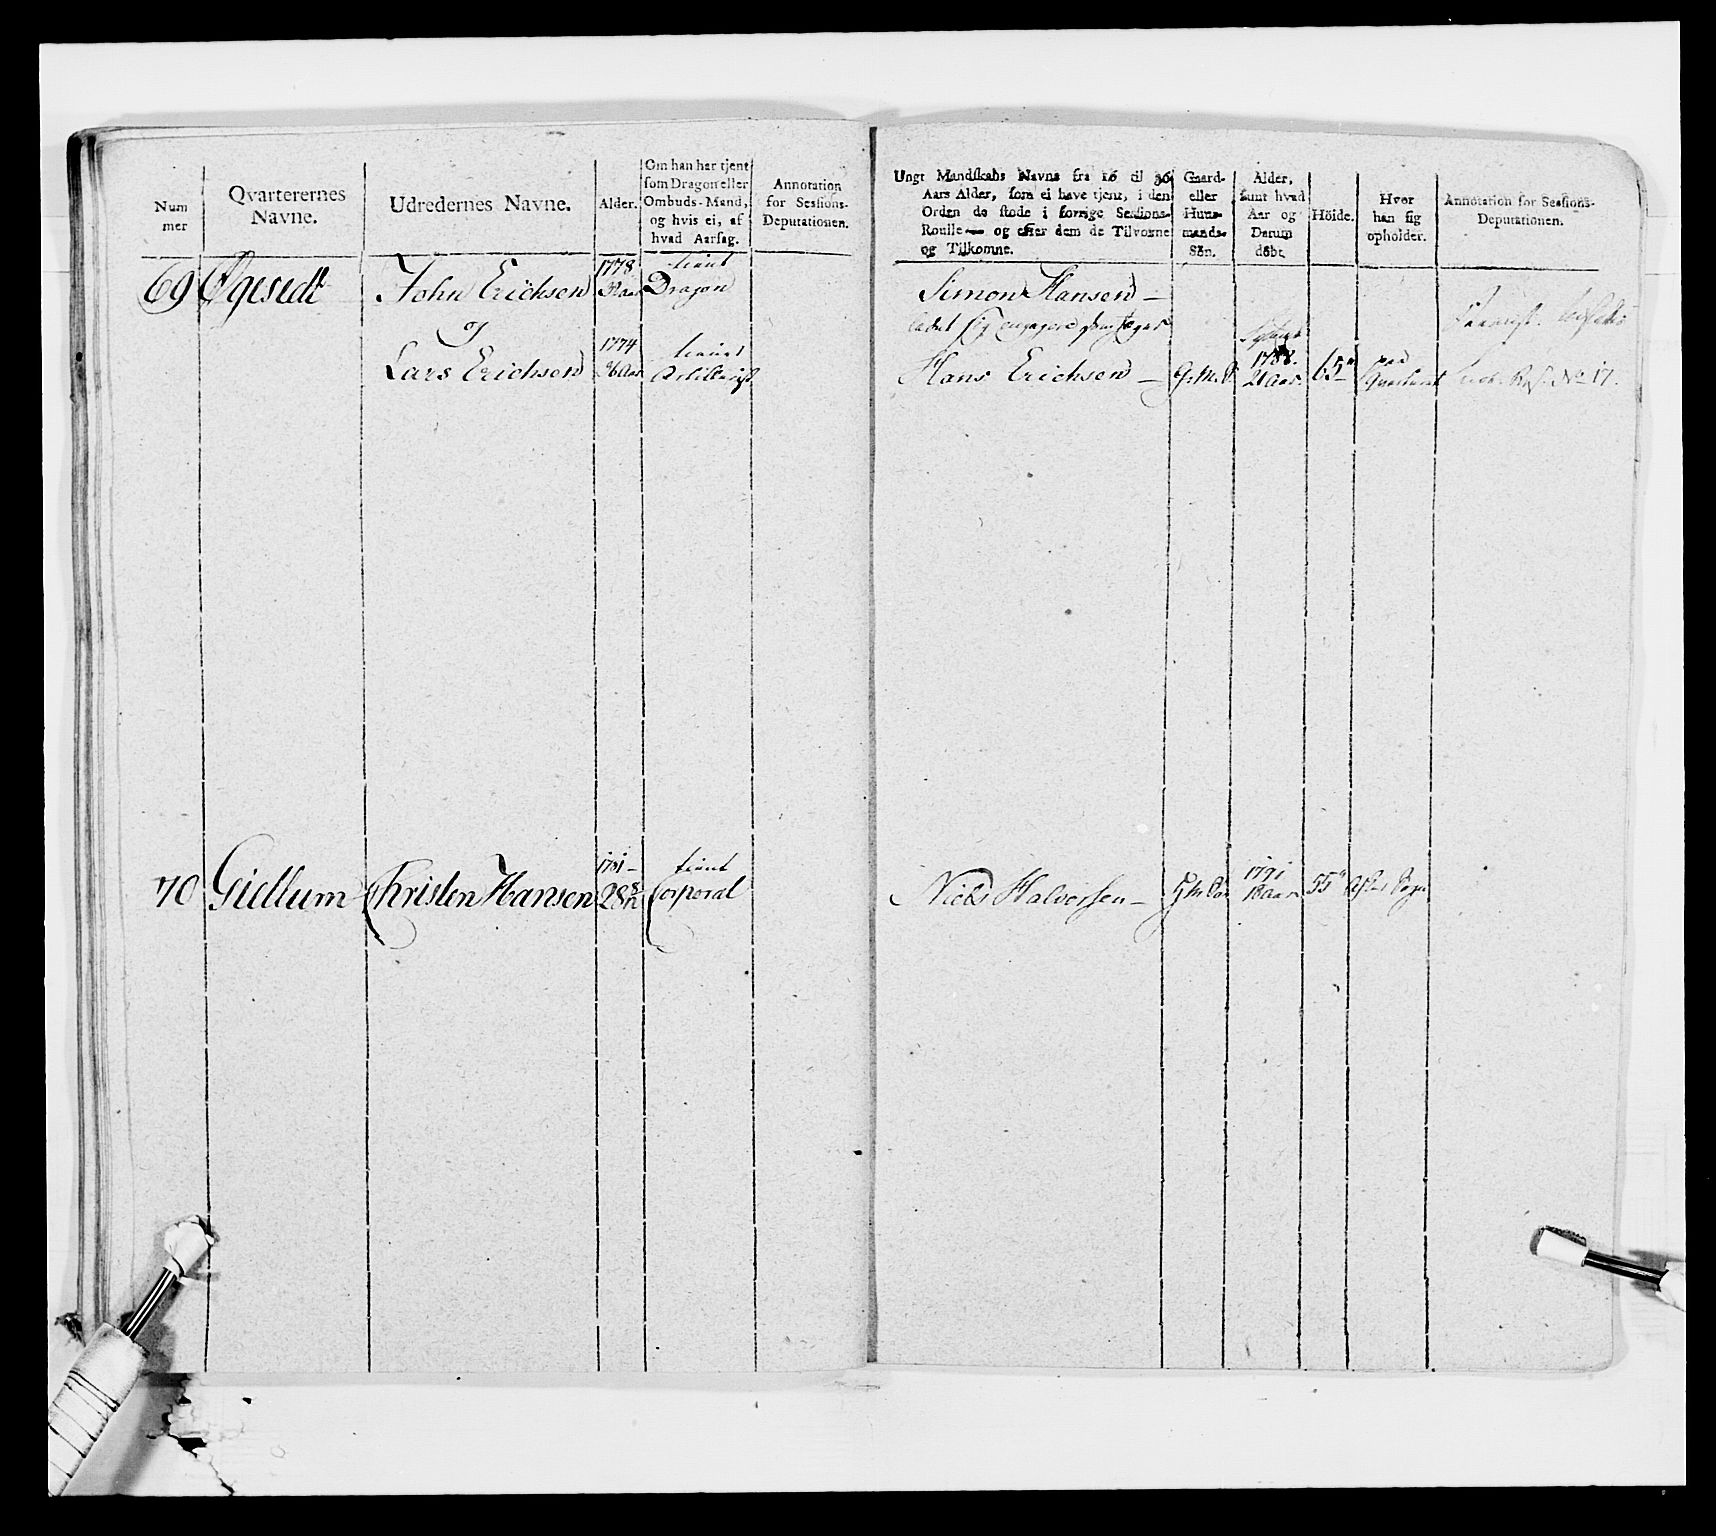 Num
mer
Qvarterernes
Navne.
Udredernes Navne.
Alder.
Om han har tjent
som Dragon eller
Ombuds-Mand,
og hvis ei, af
hvad Aarsag.
Annotation
for Sessions-
Deputationen.
69 Øgesedt John Erichsen 1778 tient
Dragon
og
Lars Erichsen 1774 tient
Artillerist
70 Gidlum Christen Hansen 1781 – 28 tient
Corporal
Ungt Mandskabs Navne fra 16 til 36
Aars Alder, som ei have tjent, i den
Orden de stode i forrige Sessions-
Roulle — og efter dem de Tilvoxne
og Tilkomne.
Gaard-
eller
Huus-
mands-
Sön.
Alder,
samt hvad
Aar og
Datum
döbt.
Höide.
Hvor
han sig
opholder.
Annotation for Sessions-
Deputationen.
Simon Hansen –
ladet sig engagere
Hans Erichsen – G.M.S. 1788. 21 Aar. paa
Qvarteret No 17.
Niels Halvorsen – 1791
18 Aar 55"